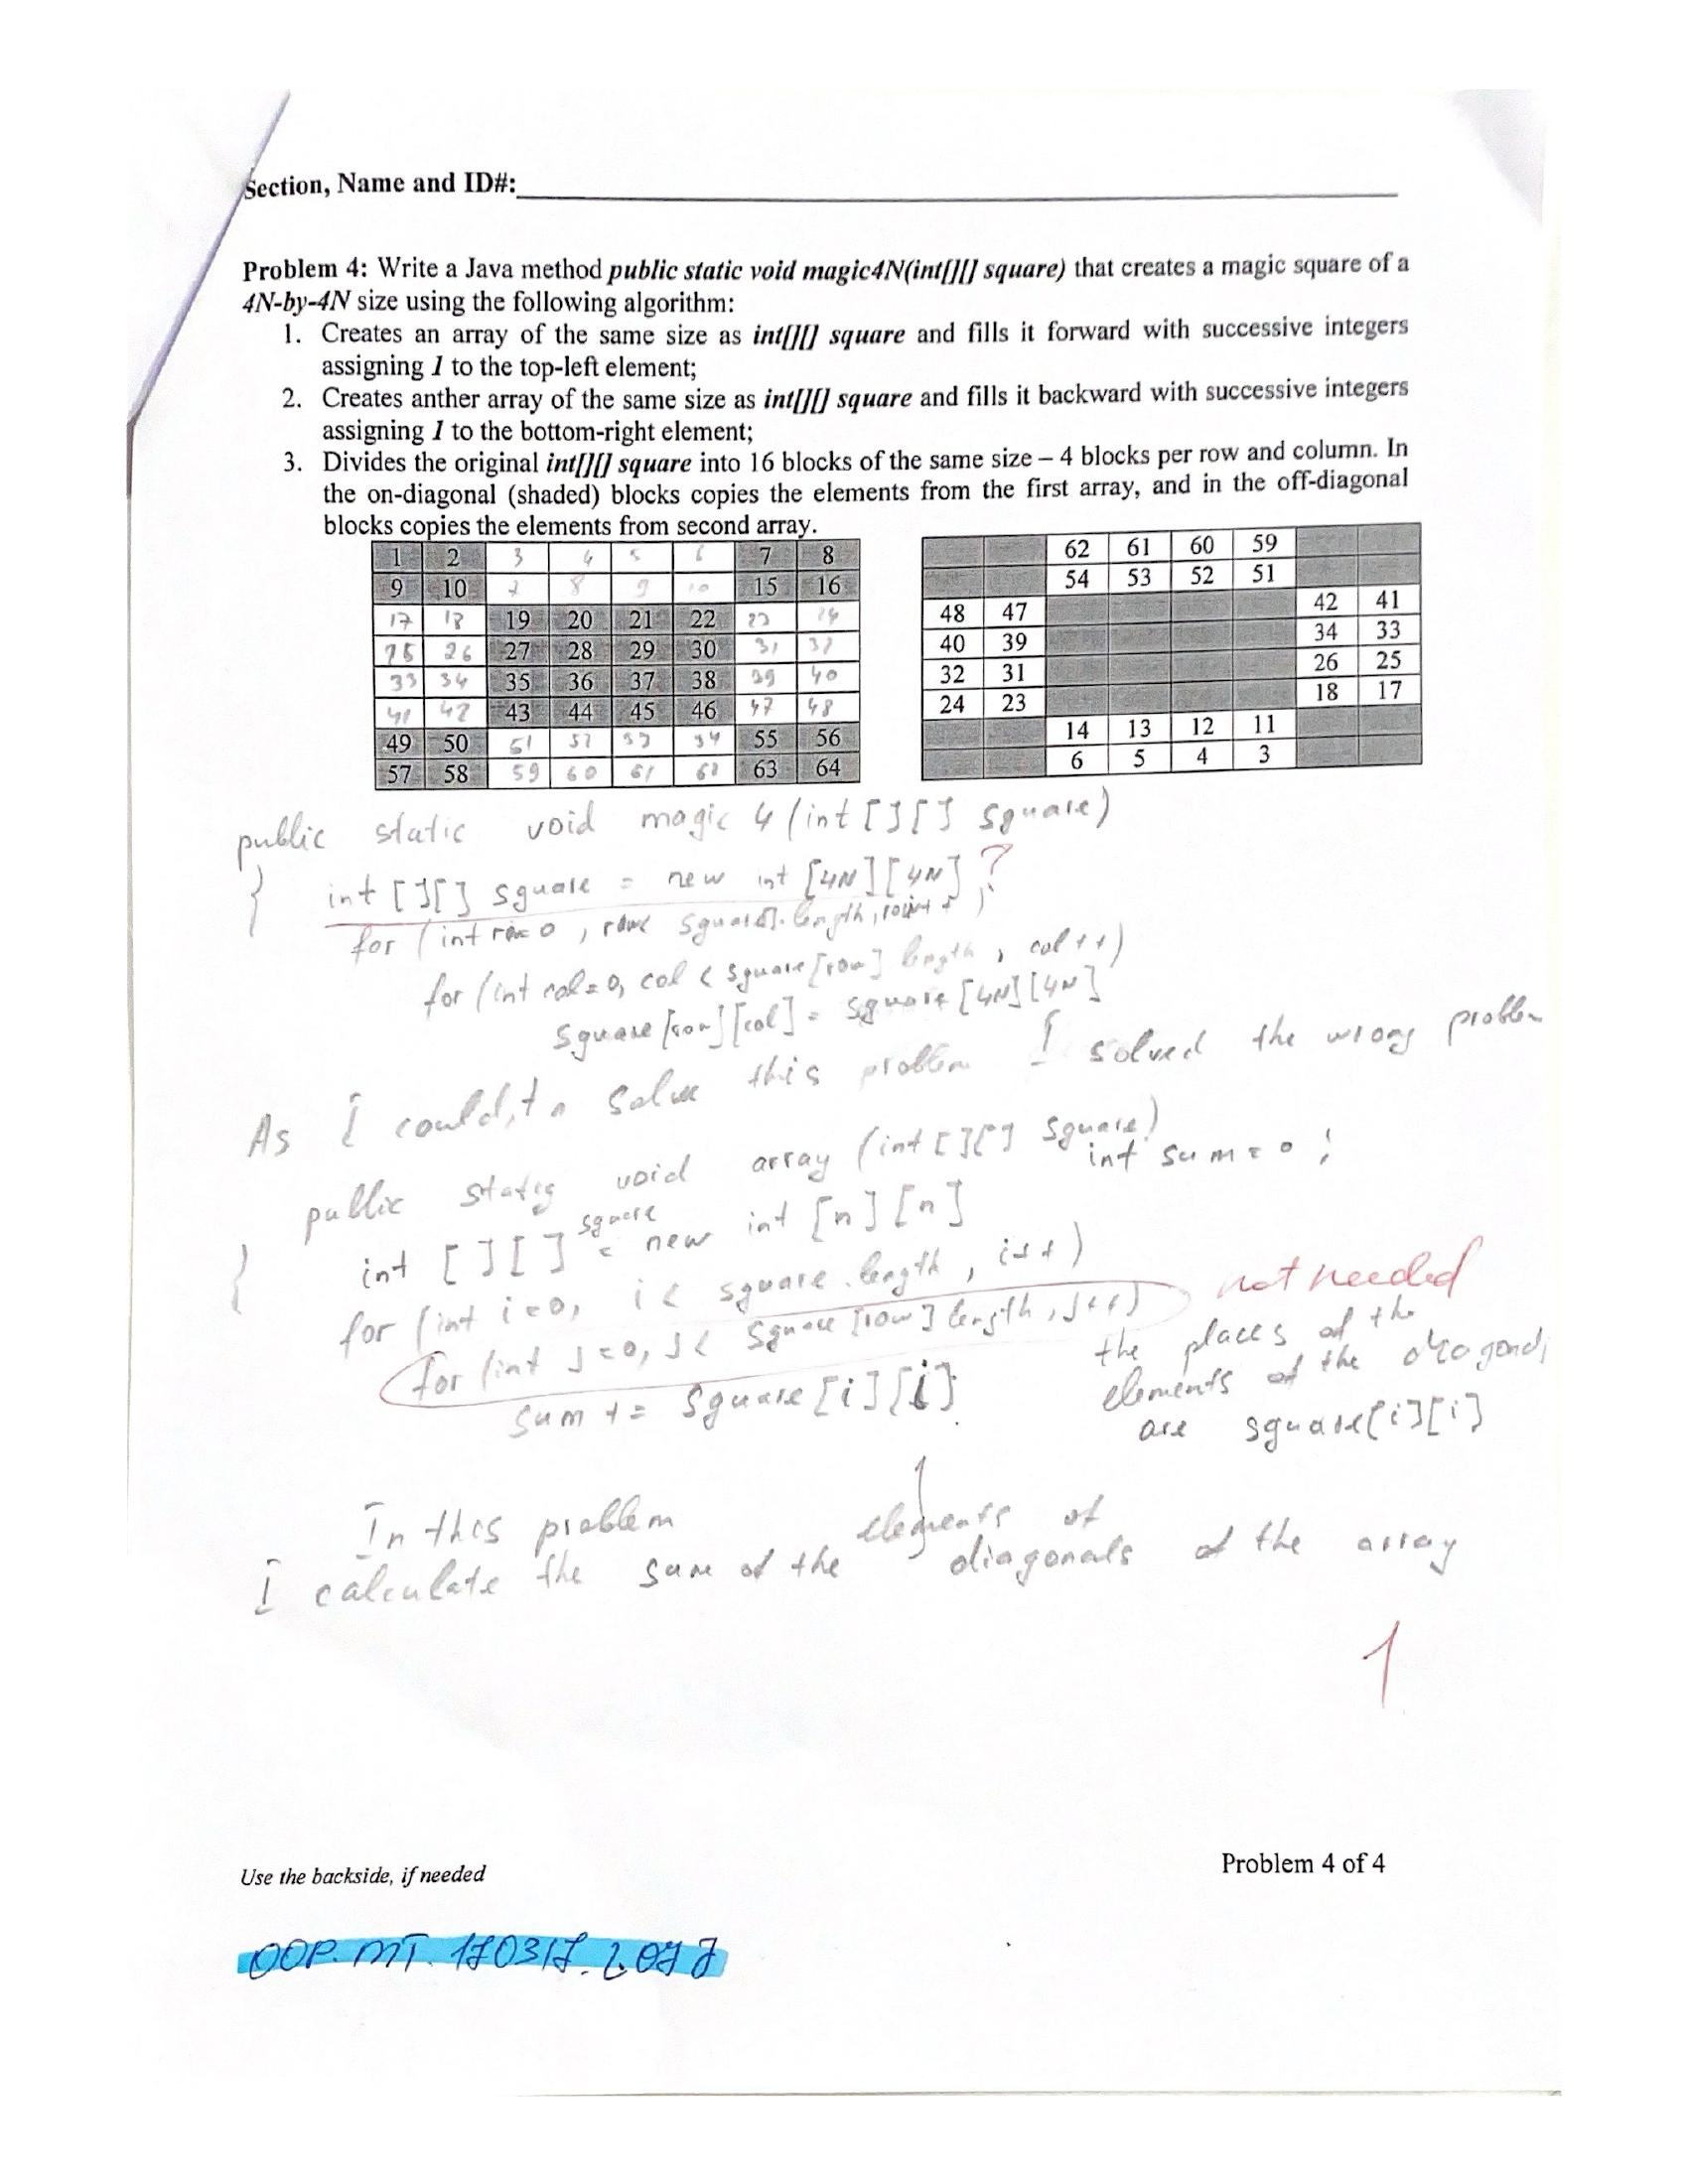 Section, Name and ID#:
Problem 4: Write a Java method public static void magic4N(int[][] square) that creates a magic square of a
4N-by-4N size using the following algorithm:
1. Creates an array of the same size as int[][] square and fills it forward with successive integers
assigning 1 to the top-left element;
2. Creates anther array of the same size as int[][] square and fills it backward with successive integers
assigning 1 to the bottom-right element;
3. Divides the original int[][] square into 16 blocks of the same size – 4 blocks per row and column. In
the on-diagonal (shaded) blocks copies the elements from the first array, and in the off-diagonal
blocks copies the elements from second array.
1 2 3 4 5 6 7 8
9 10 7 8 9 10 15 16
17 18 19 20 21 22 23 24
25 26 27 28 29 30 31 32
33 34 35 36 37 38 39 40
41 42 43 44 45 46 47 48
49 50 51 52 53 54 55 56
57 58 59 60 61 62 63 64
62 61 60 59
54 53 52 51
48 47 42 41
40 39 34 33
32 31 26 25
24 23 18 17
14 13 12 11
6 5 4 3
public static void magic 4 (int [][] square)
{ int [][] square = new int [4N][4N] ?
for (int row=0, row square[].length, row++)
for (int col=0, col < square[row] length, col++)
square [row][col] = square [4N][4N]
As I could,t solve this problem I solved the wrong problem
public static void array (int [][] square)
int sum = 0;
{ int [][] square = new int [n][n]
for (int i=0, i < square.length, i++)
for (int j=0, j < square [row] length, j++) not needed
sum += square [i][i]
the places of the
elements of the diagonal
are square[i][i]
In this problem elements of
I calculate the sum of the diagonals of the array
1
Use the backside, if needed
Problem 4 of 4
OOP. MT. 170317. 2.077